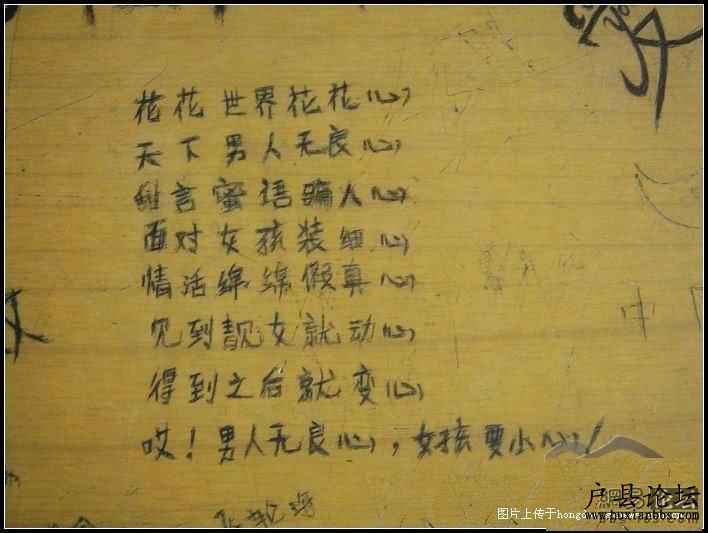 花花世界花花心
天下男人无良心
甜言蜜语骗人心
面对女孩装细心
情话绵绵假真心
见到靓女就动心
得到之后就变心
哎！男人无良心，女孩要小心！
中
图片上传于
户县论坛
www.huxianbbs.com